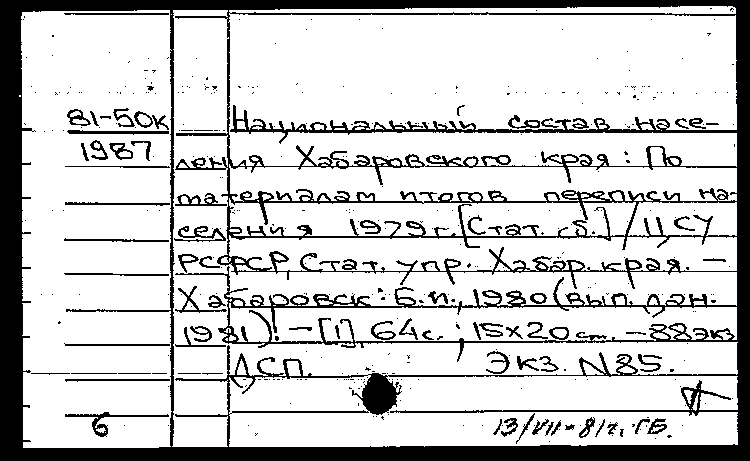 81-50к
1987
Национальный состав насе-
ления Хабаровского края: По
материалам итогов переписи на-
селения 1979 г. [Стат. сб.] / ЦСУ
РСФСР, Стат. упр. Хабар. края. —
Хабаровск: Б.и., 1980 (вып. дан.
1981). — [1], 64 с.; 15x20 см. — 88 экз
ДСП. Экз. N85.
6
13/VII-81г. ГБ.